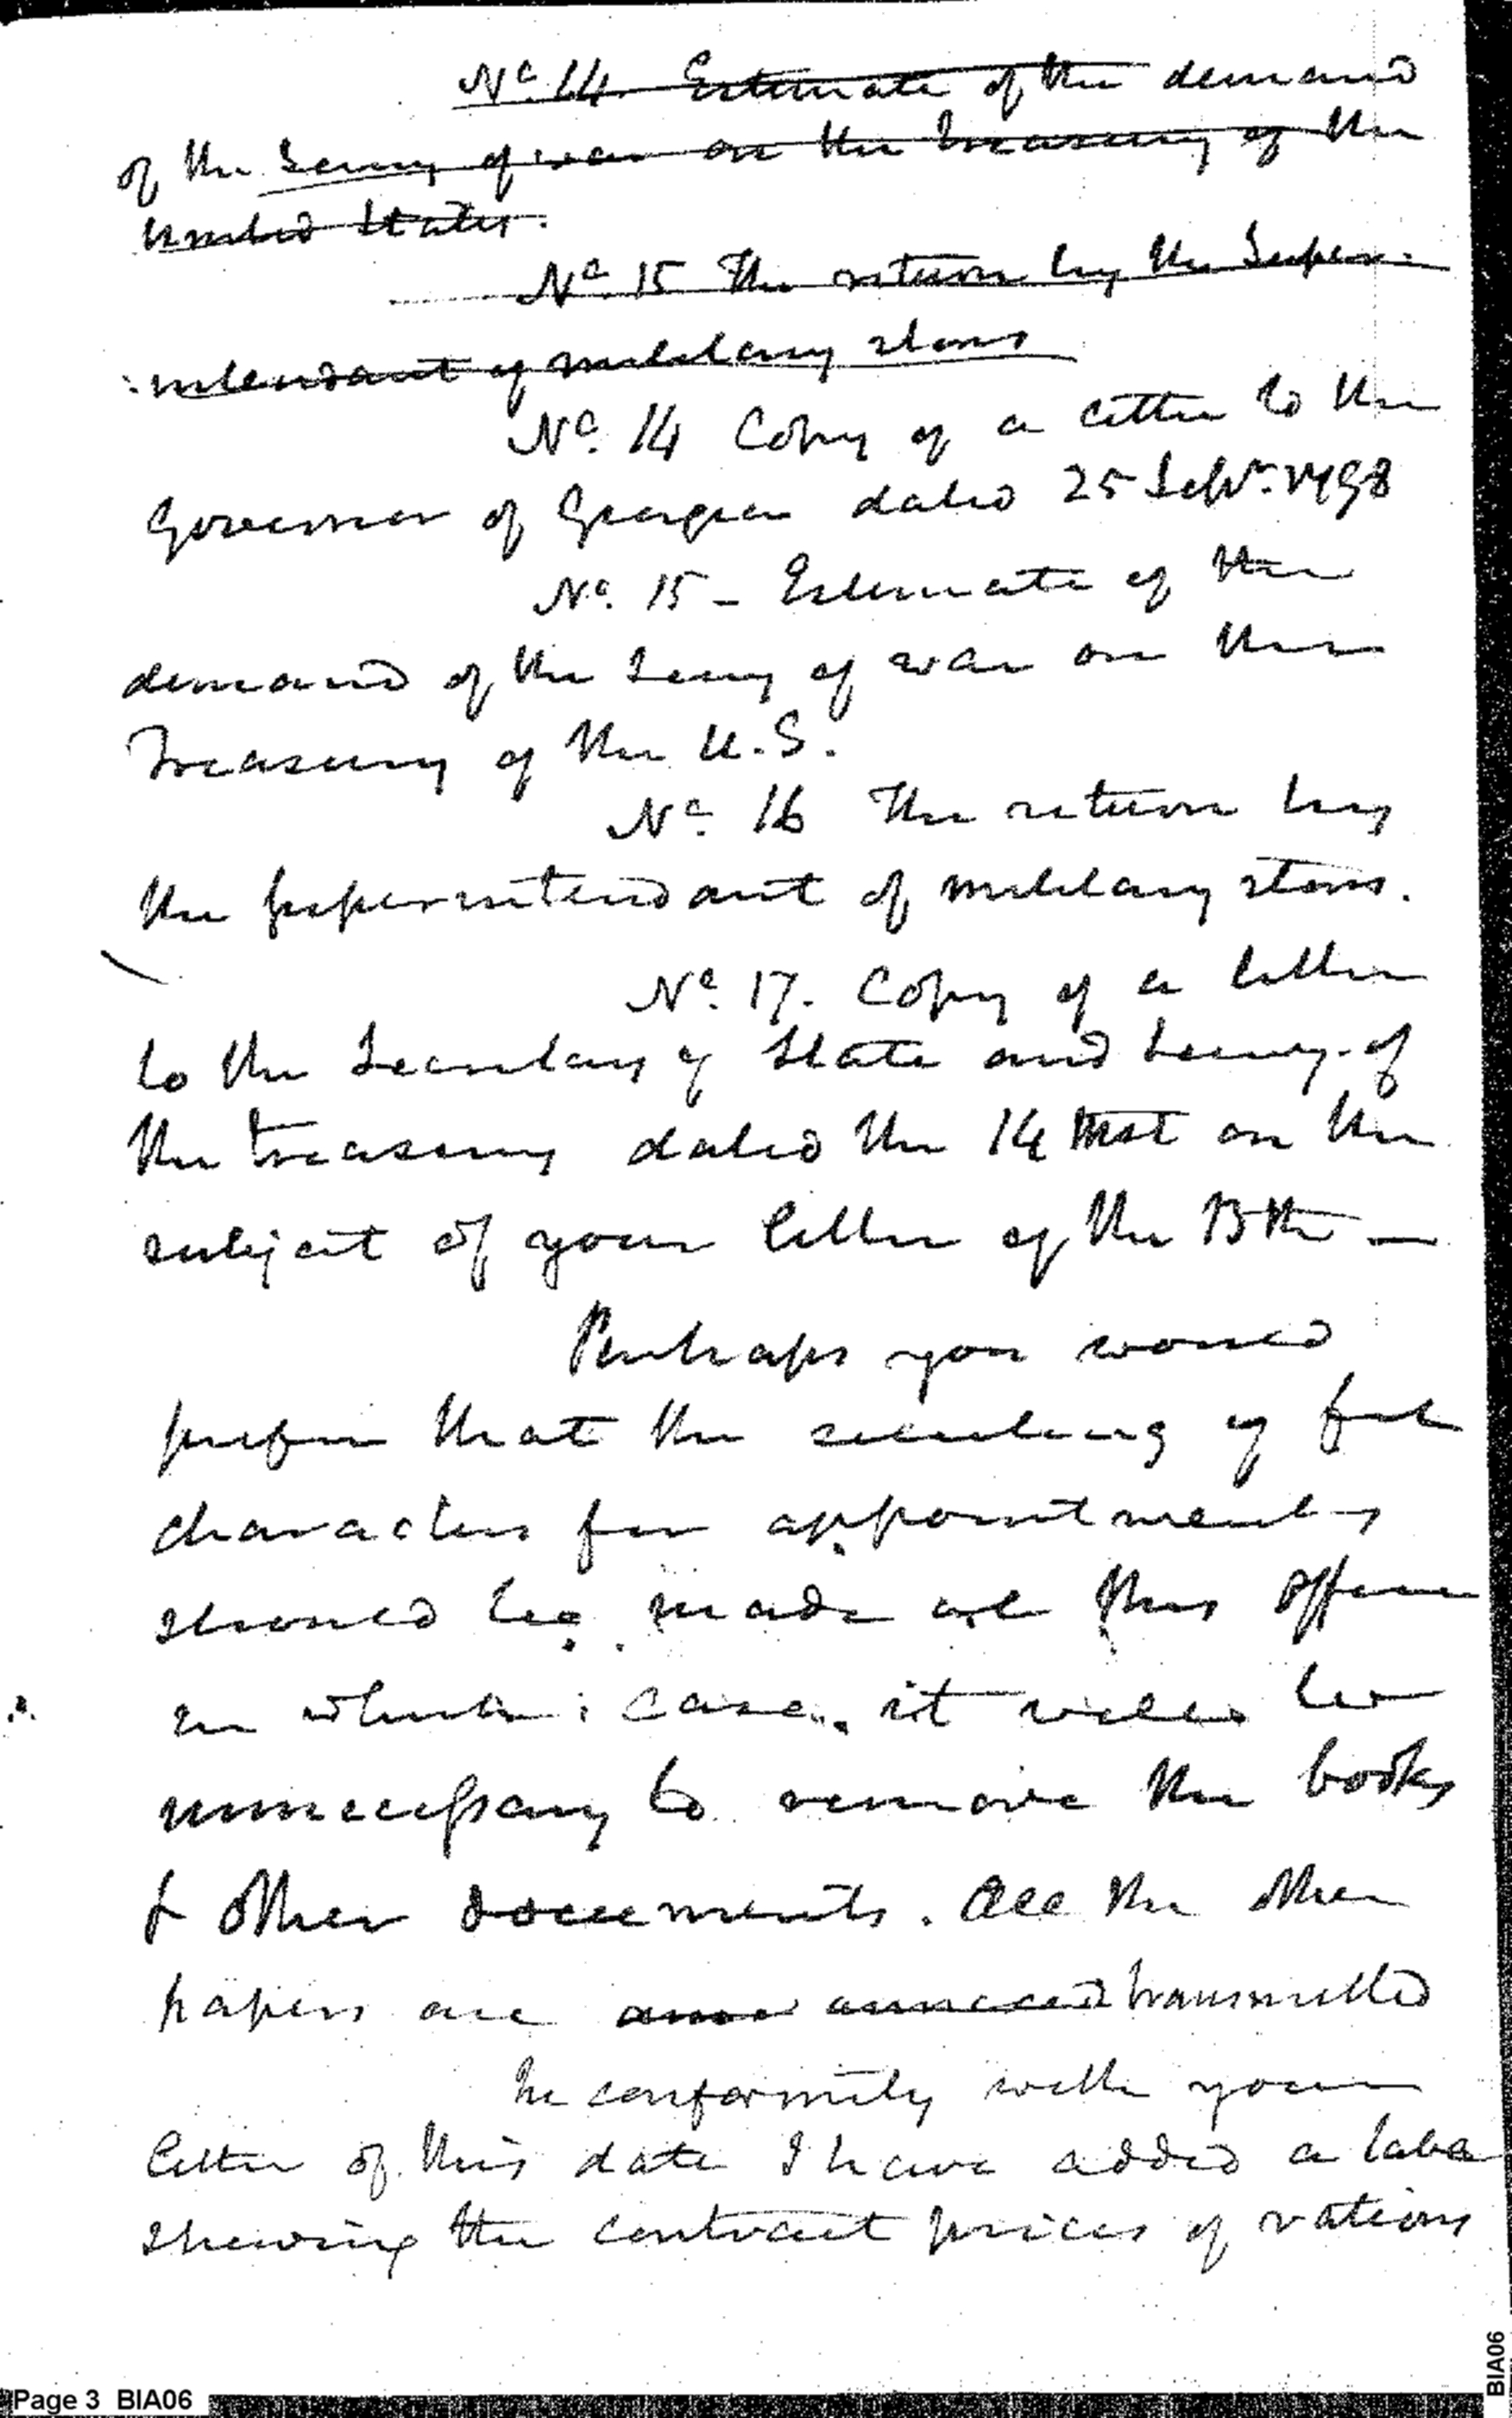 No. 14. Estimate of the demand
of the Secry of war on the treasury of the
United States.
No. 15 The return by the Super-
-intendant of military stores
No. 14 Copy of a letter to the
Governor of Georgia dated 25 Sepr. 1798
No. 15 - Estimate of the
demand of the Secry of war on the
Treasury of the U.S.
No. 16 The return by
the superintendant of military stores.
No. 17. Copy of a letter
to the Secretary of State and Secry. of
the treasury dated the 14 inst on the
subject of your letter of the 13th —
Perhaps you would
prefer that the selecting of fit
characters for appointments
should be made at this office
in which case, it will be
unnecessary to remove the books
& other documents. All the other
papers are annexed transmitted
In conformity with your
letter of this date I have added a table
shewing the contract prices of rations
Page 3 BIA06
BIA06